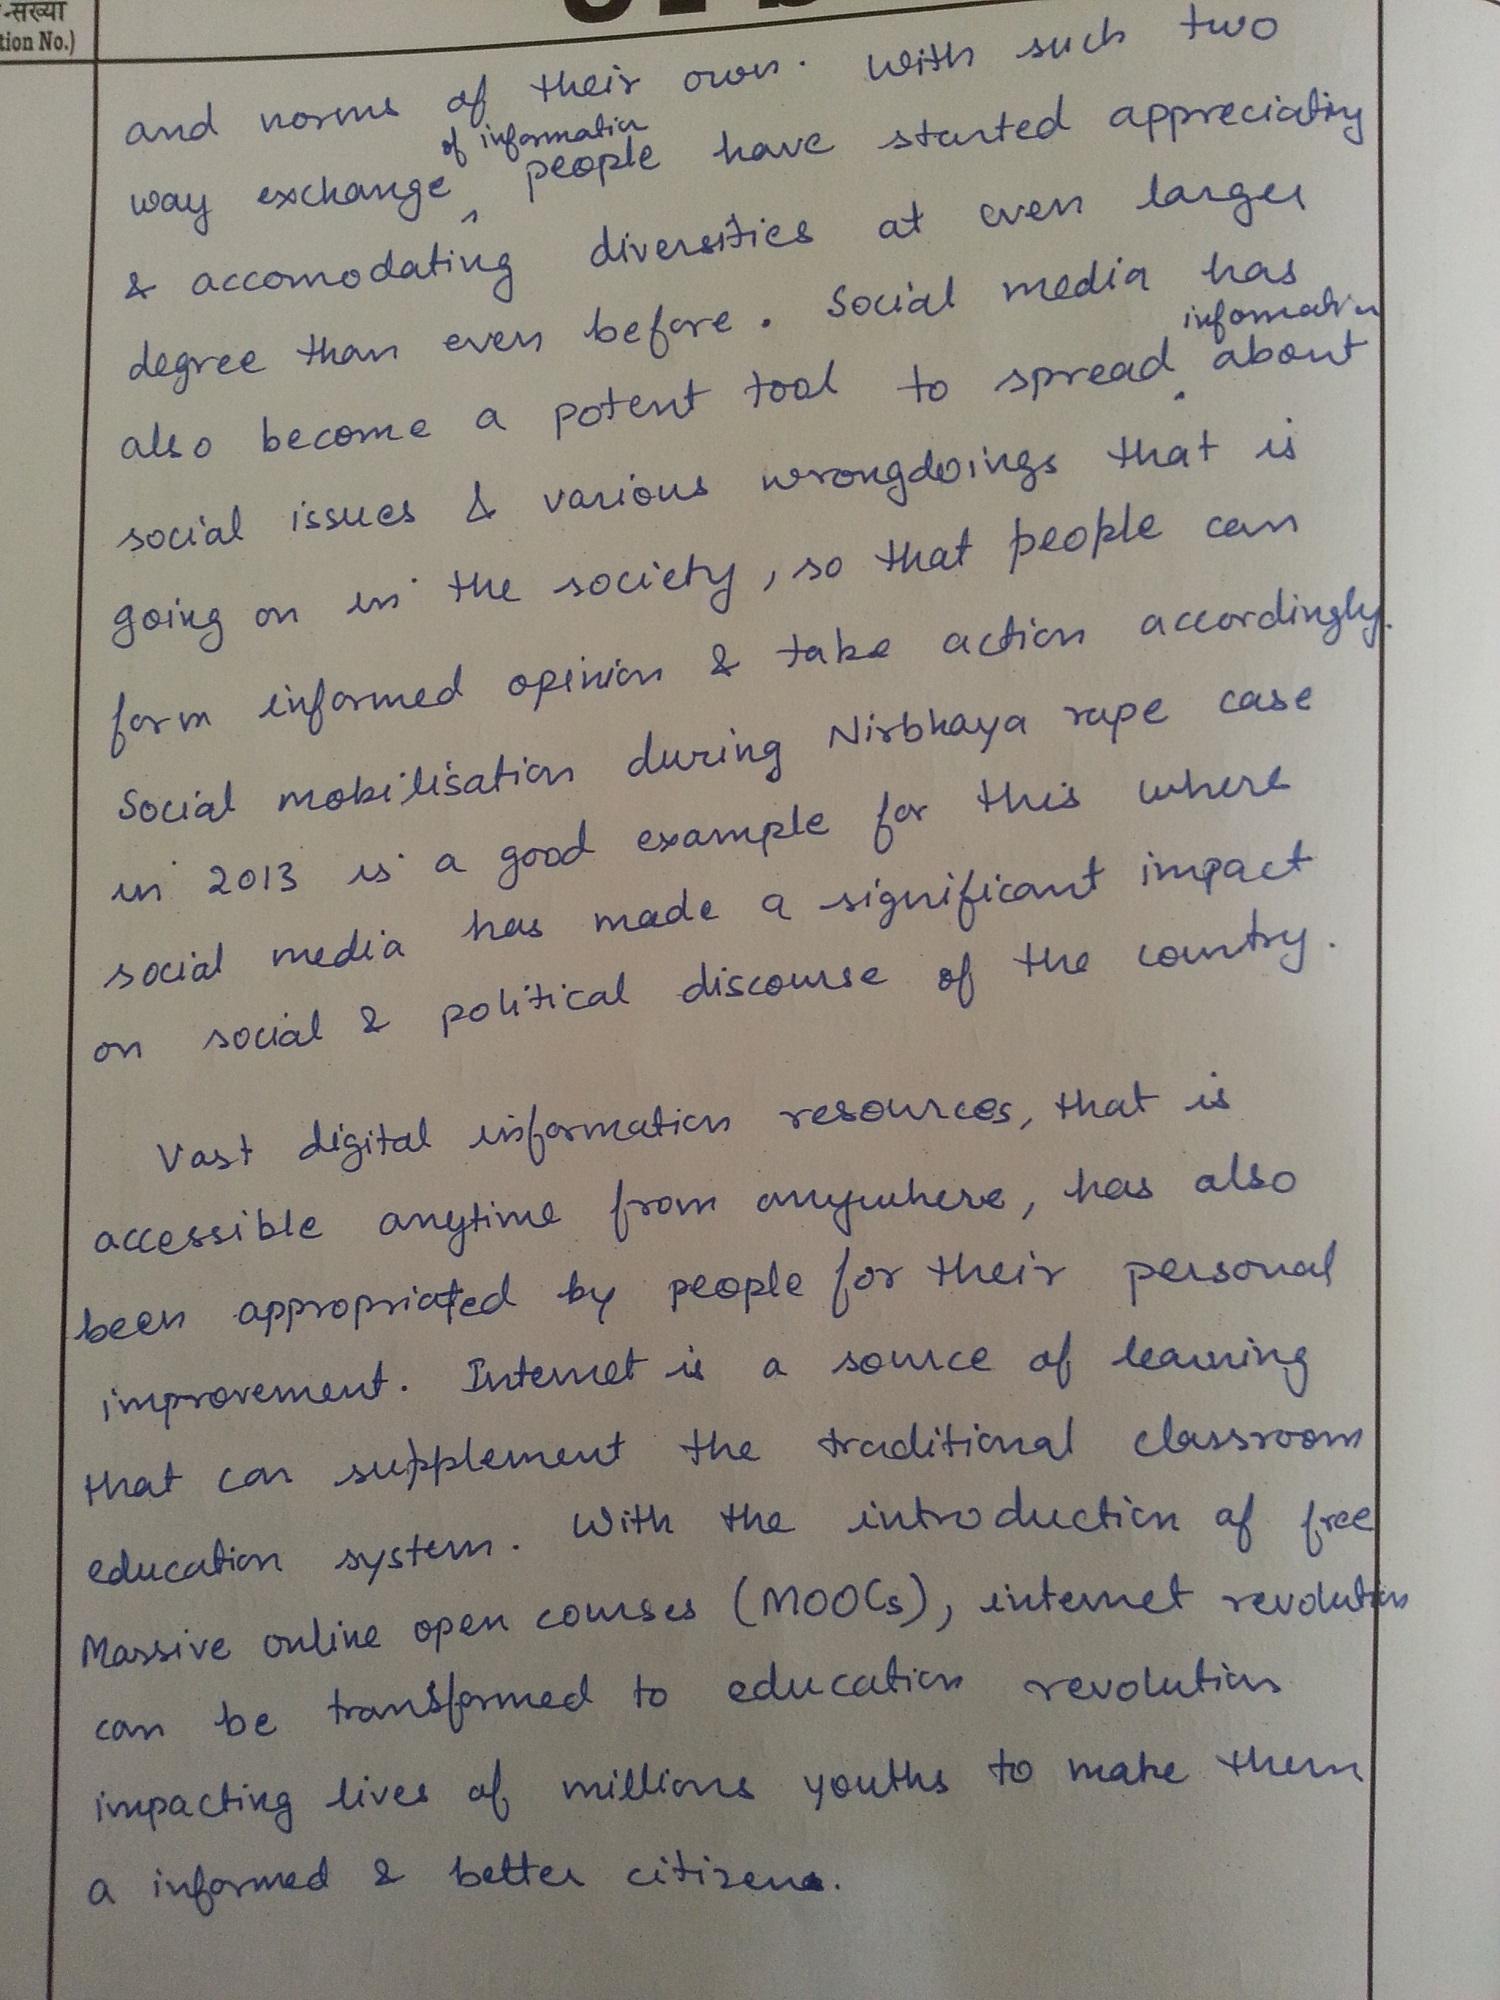 -संख्या
tion No.)
and norms of their own. With such two
of information
way exchange ^ people have started appreciating
& accomodating diversities at even larger
degree than even before. Social media has
information
also become a potent tool to spread ^ about
social issues & various wrongdoings that is
going on in the society, so that people can
form informed opinion & take action accordingly.
Social mobilisation during Nirbhaya rape case
in 2013 is a good example for this where
social media has made a significant impact
on social & political discourse of the country.
Vast digital information resources, that is
accessible anytime from anywhere, has also
been appropriated by people for their personal
improvement. Internet is a source of learning
that can supplement the traditional classroom
education system. With the introduction of free
Massive online open courses (MOOCs), internet revolution
can be transformed to education revolution
impacting lives of millions youths to make them
a informed & better citizens.